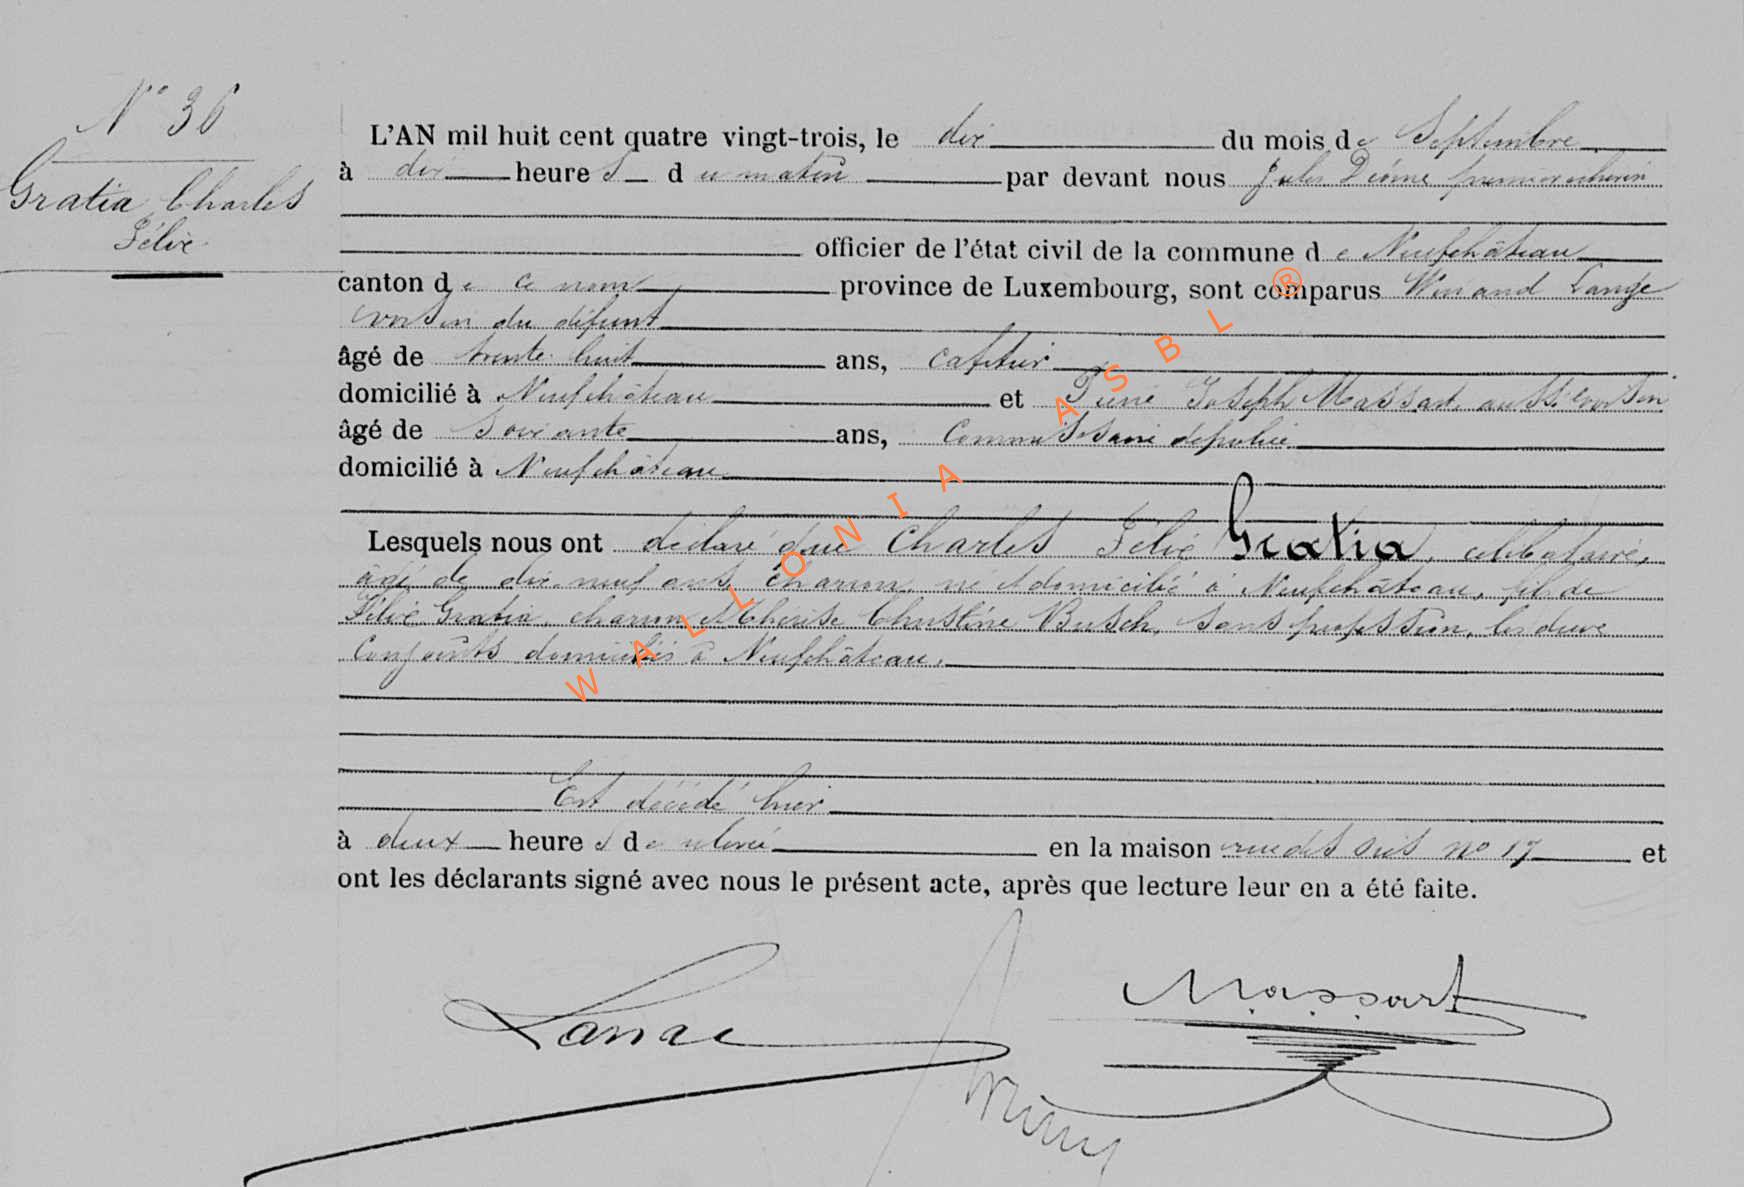 N° 36
Gratia Charles
Félix
L'AN mil huit cent quatre vingt-trois, le dix du mois de Septembre
à dix heures du matin par devant nous Jules premier échevin
officier de l'état civil de la commune de Neufchâteau
canton de ce nom province de Luxembourg, sont comparus Winand Lange
voisin du défunt
âgé de trente huit ans, cafetier
domicilié à Neufchâteau et Pierre Joseph Massart aussi voisin
âgé de soixante ans, Commissaire de police
domicilié à Neufchâteau
Lesquels nous ont déclaré que Charles Félix Gratia, célibataire,
âgé de dix-neuf ans, charron, né et domicilié à Neufchâteau, fils de
Félix Gratia, charron et Thérèse Christine Busch, sans profession, les deux
conjoints domiciliés à Neufchâteau.
Est décédé hier
à deux heures de relevée en la maison rue des n° 17 et
ont les déclarants signé avec nous le présent acte, après que lecture leur en a été faite.
Lange
Massart
WALLONIA ASBL ®